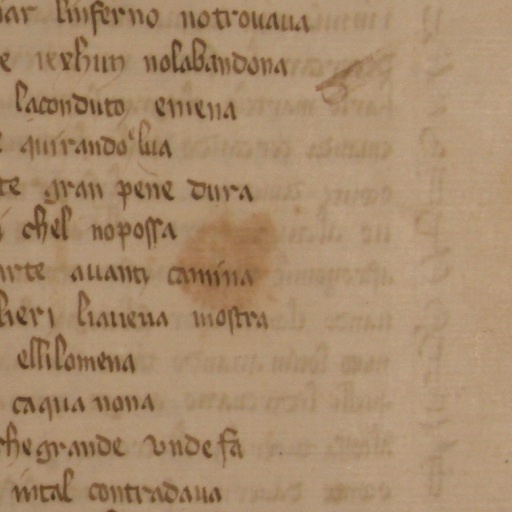 iar linferno notrouaua
e nolabandona
laconduto emena
quirando lua
te gran pene dura
i chel nopossa
arte auanti camina
lieri liaueua mostra
ellilomena
caqua nona
che grande unde fa
inital contradaua